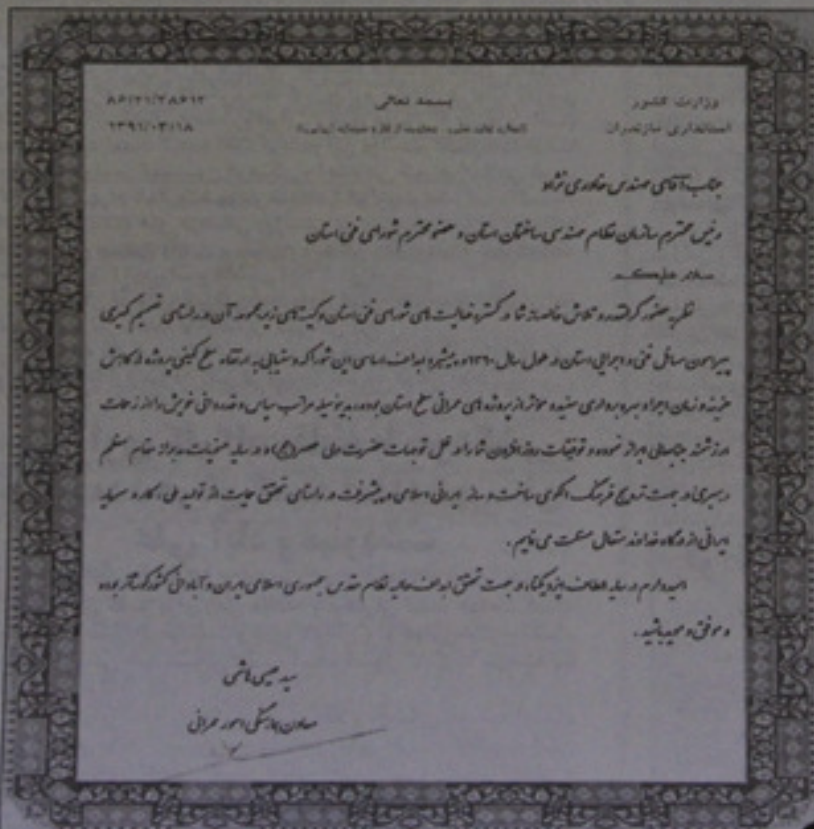 وزارت کشور
استانداری مازندران
بسمه تعالی
۱۳۹۱/۰۳/۱۸
جناب آقای مهندس خاوری نژاد
رئیس محترم سازمان نظام مهندسی ساختمان استان و عضو محترم شورای فنی استان
سلام علیکم
نظر به حضور گرانقدر و تلاش خالصانه شما در گستره فعالیت های شورای فنی استان و کمیته های زیرمجموعه آن در راستای تصمیم گیری
پیرامون مسائل فنی و اجرایی استان در طول سال ۱۳۹۰ و پیشبرد اهداف اساسی این شورا که دستیابی به ارتقاء سطح کیفی پروژه ها، کاهش
هزینه و زمان اجرا و بهره برداری مفید و مؤثر از پروژه های عمرانی سطح استان بوده، بدینوسیله مراتب سپاس و قدردانی خویش را از زحمات
ارزشمند جنابعالی ابراز نموده و توفیقات روزافزون شما را در ظل توجهات حضرت ولی عصر (عج) و در سایه منویات مقام معظم
رهبری در جهت ترویج فرهنگ الگوی ساخت و ساز ایرانی اسلامی و پیشرفت در راستای تحقق حمایت از تولید ملی، کار و سرمایه
ایرانی از درگاه خداوند متعال مسئلت می نمایم.
امیدوارم در سایه الطاف ایزد یکتا، در جهت تحقق اهداف عالیه نظام مقدس جمهوری اسلامی ایران و آبادانی کشور کوشاتر بوده
و موفق و موید باشید.
سید هاشمی
معاون هماهنگی امور عمرانی